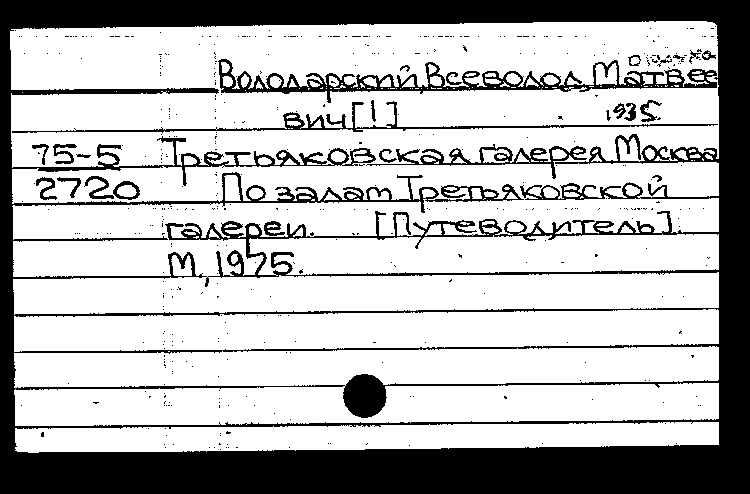 Володарский, Всеволод Матвее
вич [!] 1935
75-5 Третьяковская галерея Москва
2720 По залам Третьяковской
галереи. [Путеводитель].
М., 1975.